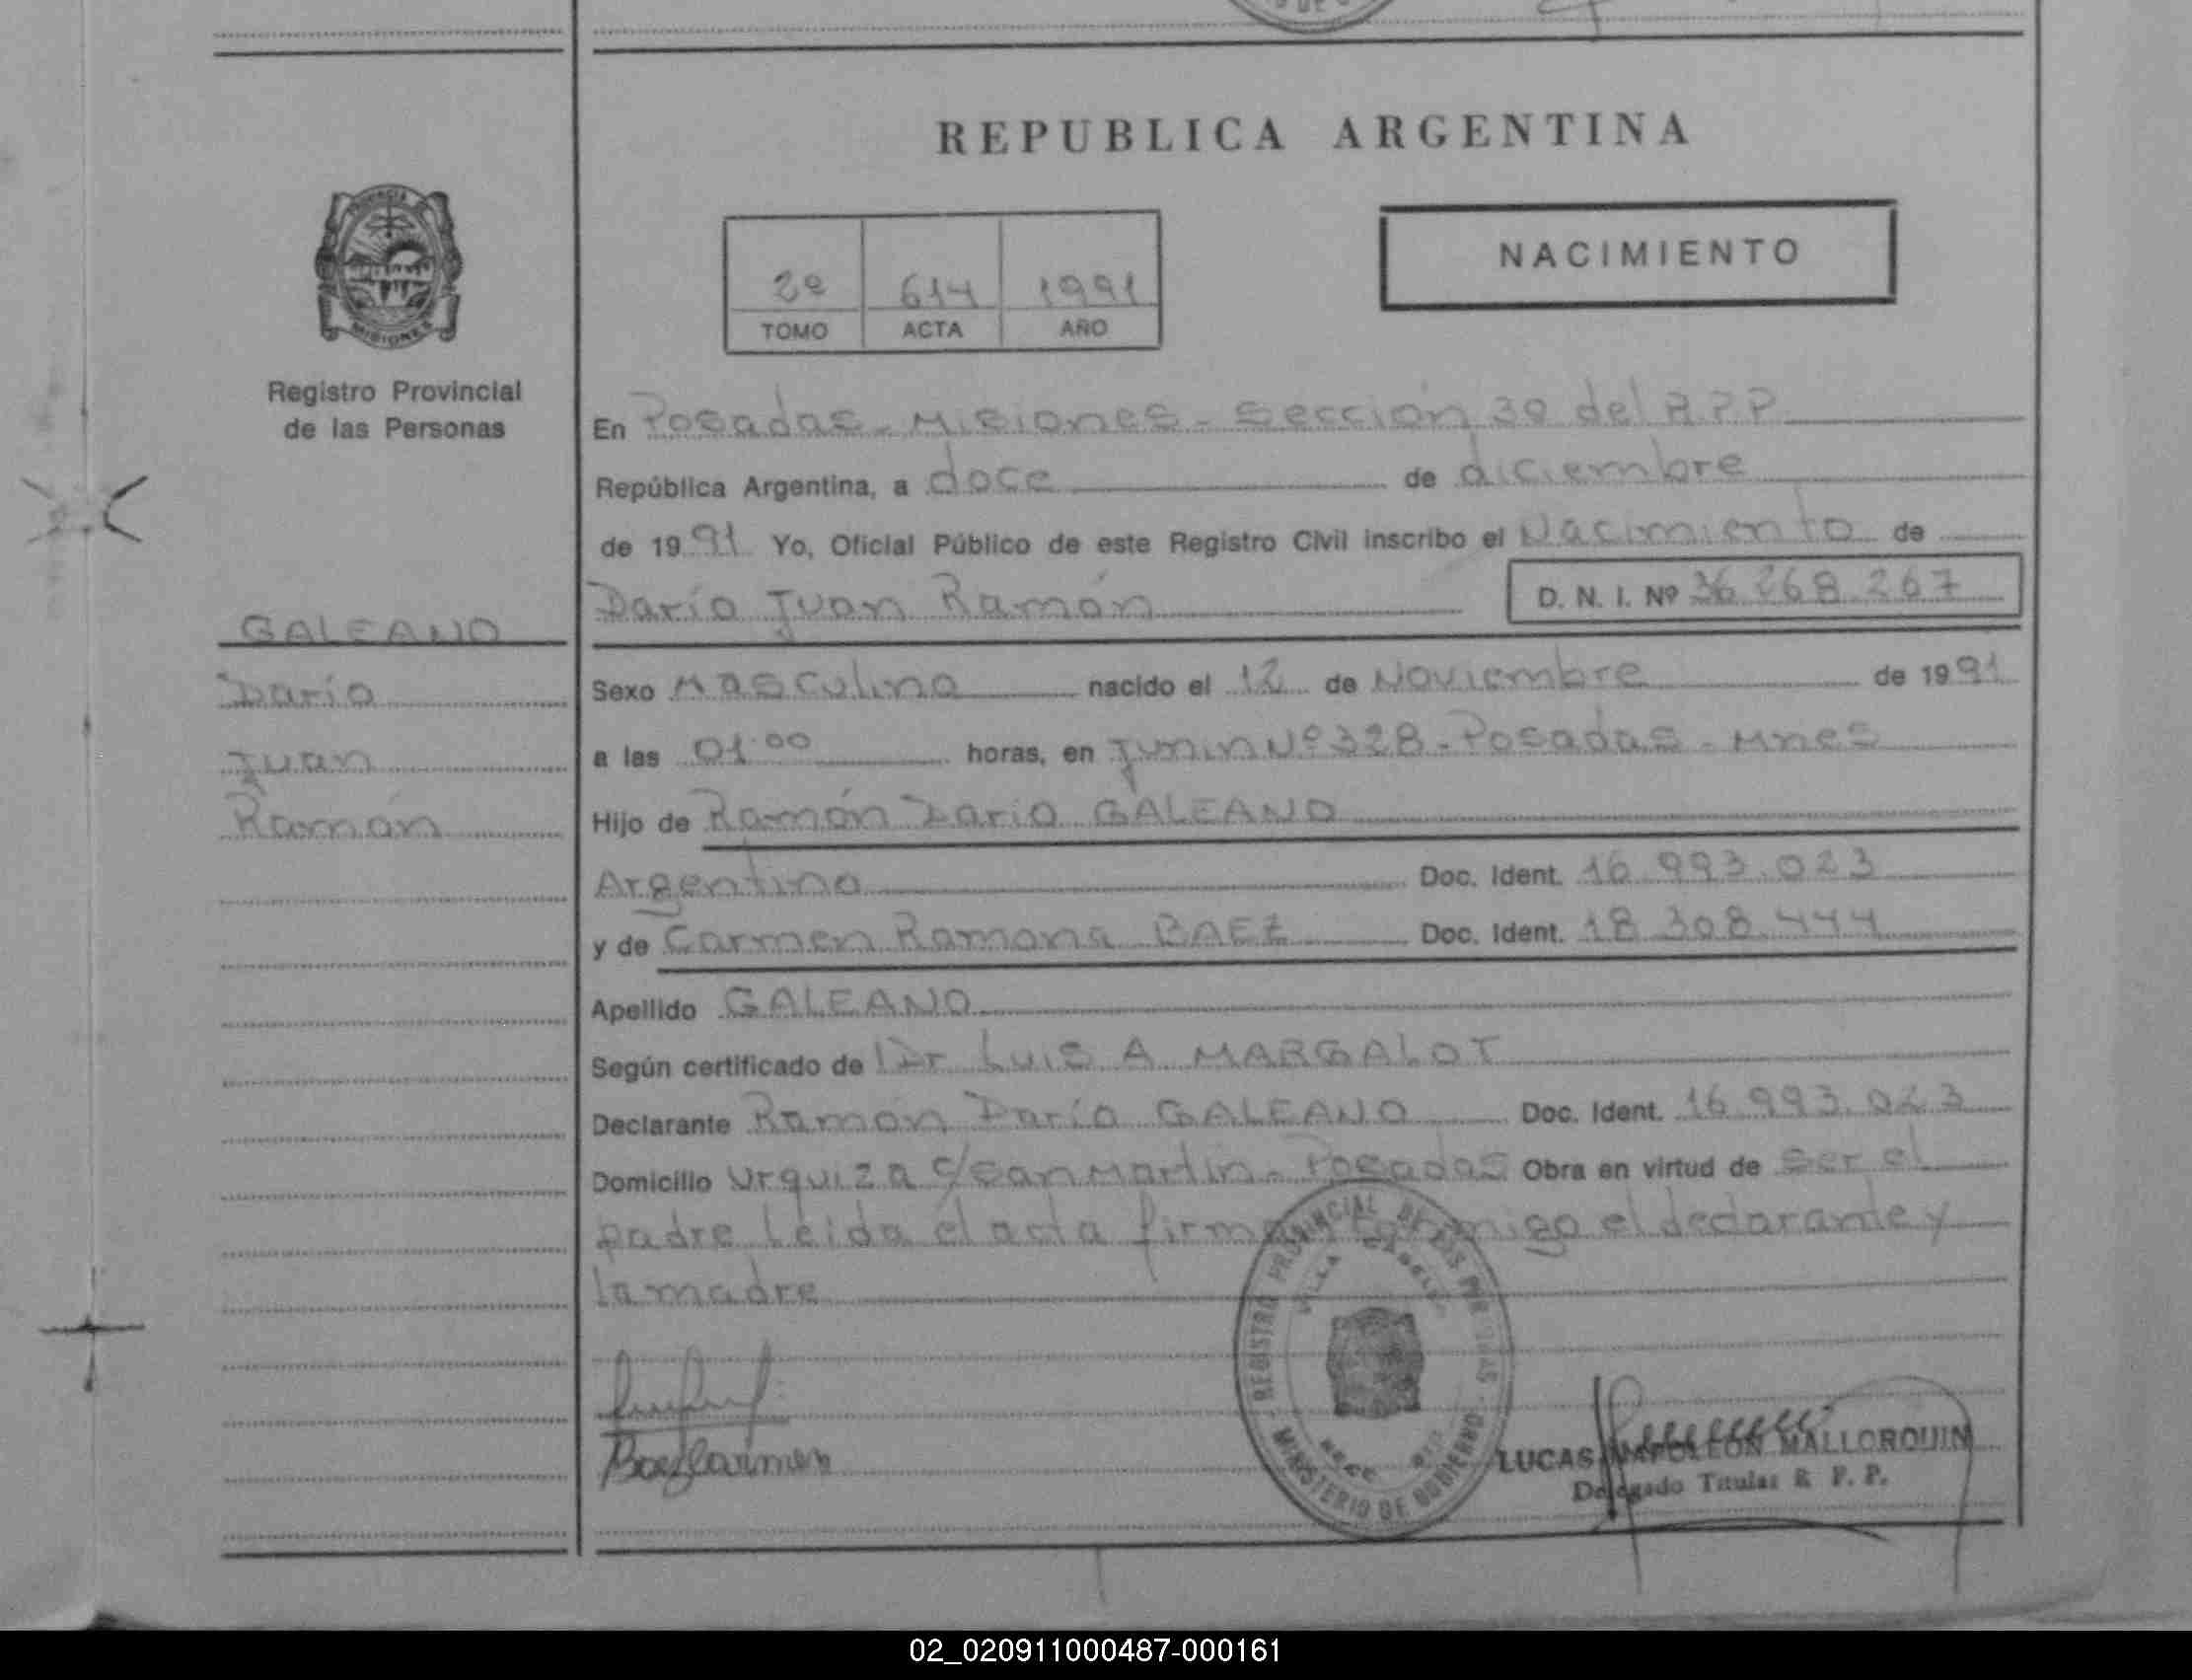 REPUBLICA ARGENTINA
NACIMIENTO
2º 614 1991
TOMO ACTA AÑO
PROVINCIA DE
MISIONES
Registro Provincial
de las Personas
En Posadas - Misiones - Sección 3º del R.P.P
República Argentina, a doce de diciembre
de 1991 Yo, Oficial Público de este Registro Civil inscribo el Nacimiento de
Darío Juan Ramón D. N. I. Nº 36.268.267
GALEANO
Darío
Juan
Ramón
Sexo Masculino nacido el 12 de Noviembre de 1991
a las 01:00 horas, en Junin Nº 328 - Posadas - Mnes
Hijo de Ramón Darío GALEANO
Argentino Doc. Ident. 16.993.023
y de Carmen Ramona BAEZ Doc. Ident. 18.308.444
Apellido GALEANO
Según certificado de Dr LUIS A MARGALOT
Declarante Ramón Darío GALEANO Doc. Ident. 16.993.023
Domicilio Urquiza c/San Martín - Posadas Obra en virtud de ser el
padre Leida el acta firma conmigo el declarante y
la madre
Baez Carmen
REGISTRO PROVINCIAL DE LAS PERSONAS
VILLA CABELLO
MINISTERIO DE GOBIERNO
LUCAS NAPOLEON MALLORQUIN
Delegado Titular R. P. P.
02_020911000487-000161